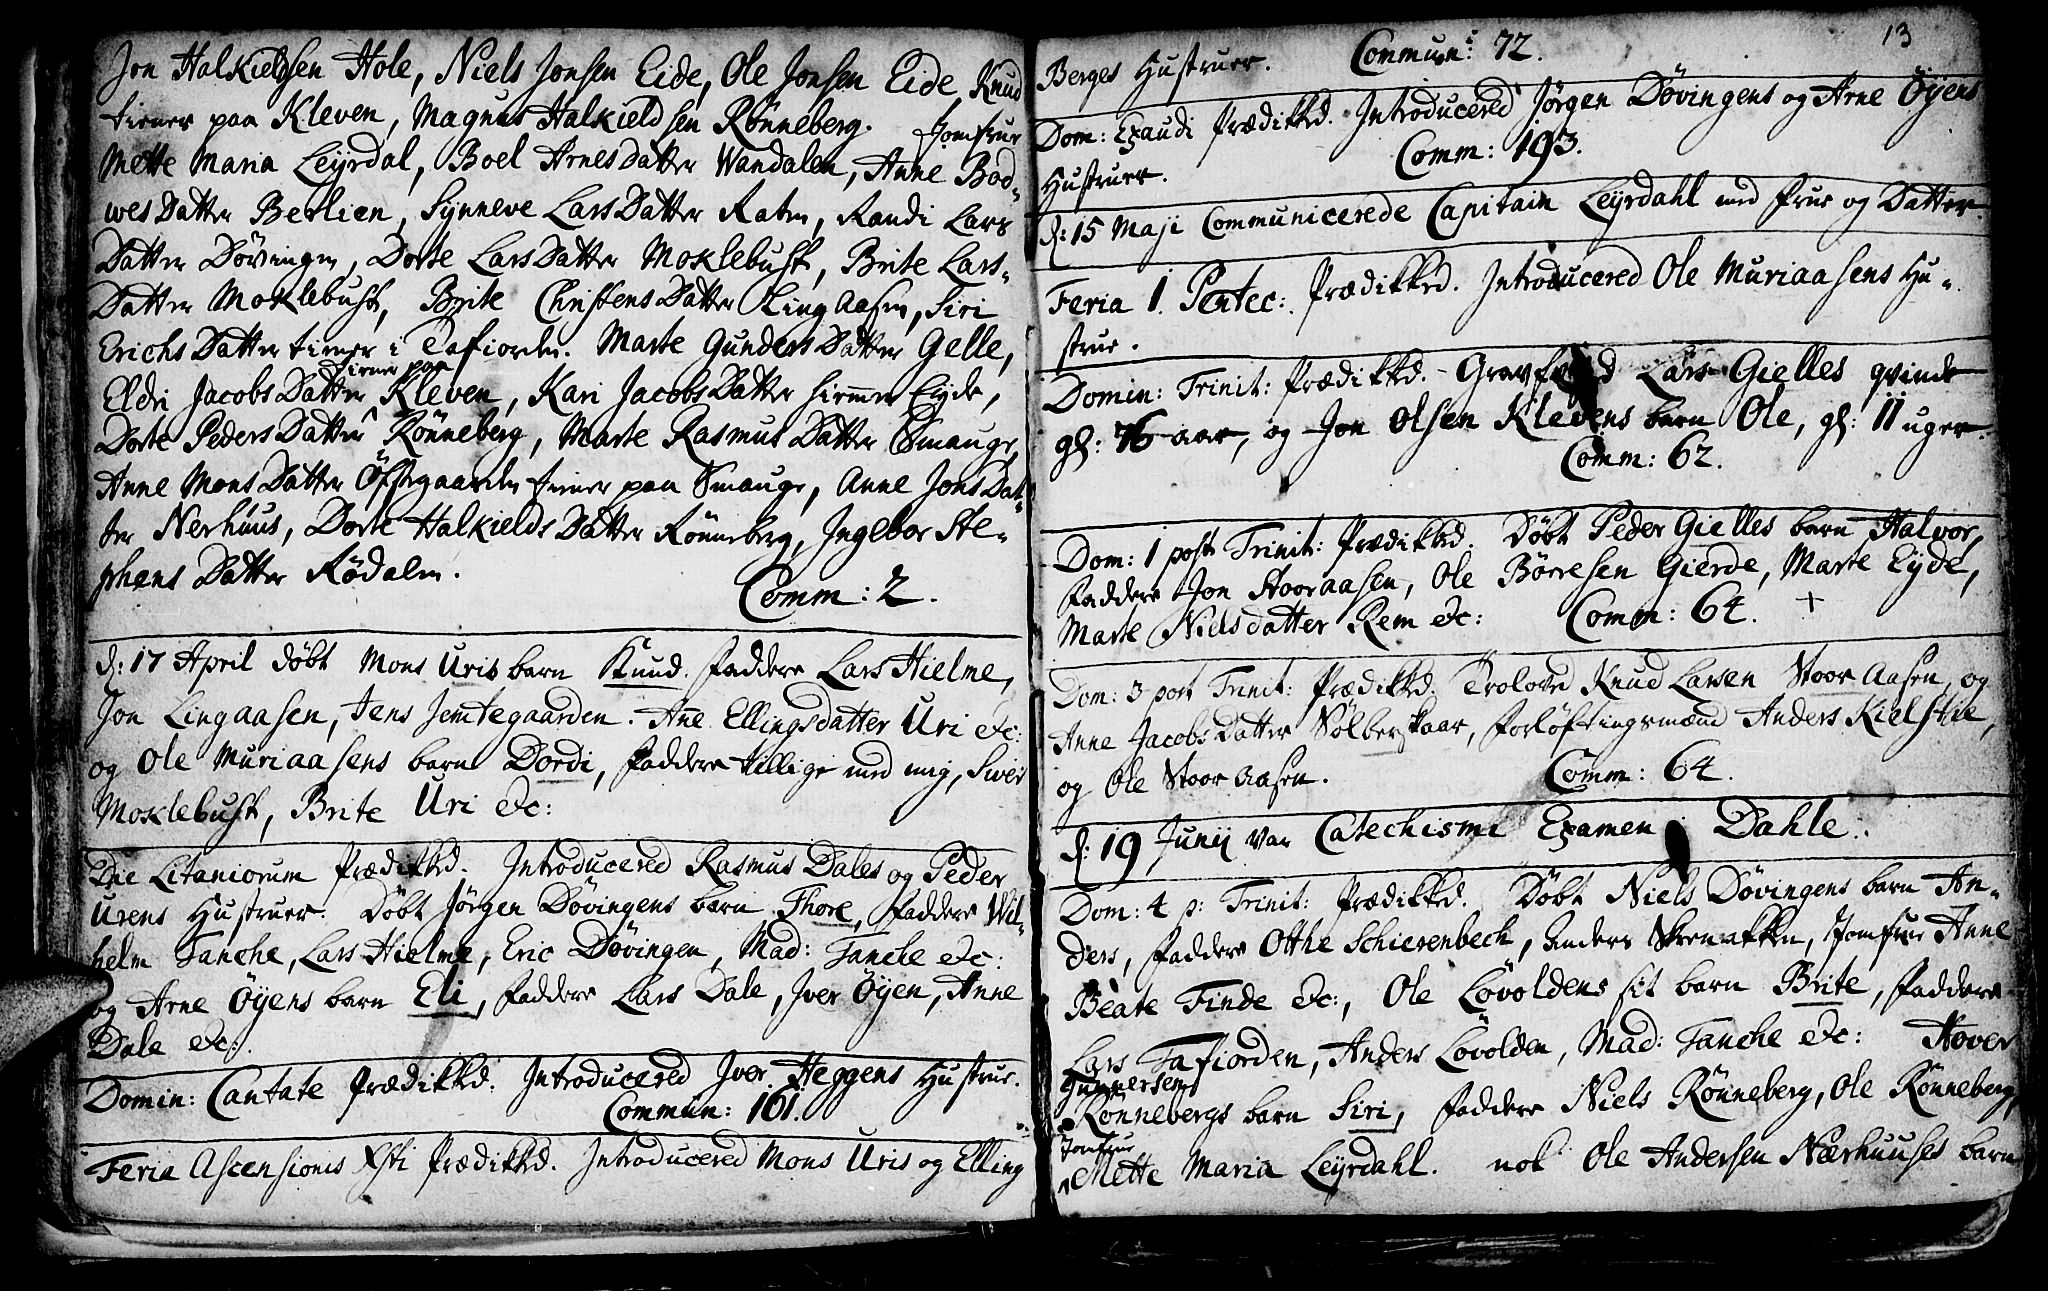 Jon Halkieldsen Hole, Niels Jonsen Eide, Ole Jonsen Eide, Knud
tiener paa Kleven, Magnus Halkieldsen Rönneberg. Jomfrue
Mette Maria Leyrdal, Boel Arnesdatter Wandalen, Anne Bod-
wesdatter Berlien, Synneve Larsdatter Raten, Randi Lars
datter Dövingen, Dorte Larsdatter Moklebust, Brite Lars-
datter Moklebust, Brite Christensdatter Lingaasen, Siri
Erichsdatter tiener i Tafiorden. Marte Gundersdatter Gelle,
tiener paa
Eldri Jacobsdatter Kleven, Kari Jacobsdatter Eyde,
Dorte Pedersdatter Rönneberg, Marte Rasmusdatter Smauge,
Anne Monsdatter Öfstegaarden tiener paa Smauge, Anne Jonsdat-
ter Nerhuus, Dorte Halkieldsdatter Rönneberg, Ingebor Ste-
phensdatter Rödalen.
Comm: 2.
d: 17 April döbt Mons Uris barn Knud. Faddere Lars Hielme,
Jon Lingaasen, Jens Jemtegaarden. Ane Ellingsdatter Uri &c:
og Ole Muriaasens barn Dordi, Faddere tillige med mig, Siver
Moklebust, Brite Uri &c:
Die Litaniorum Prædikked. Introducered Rasmus Dales og Peder
Urens Hustruer. Döbt Jörgen Dövingens barn Thore, Faddere Wil-
helm Tanche, Lars Hielme, Eric Dövingen, Mad: Tanche &c:
og Arne Öyens barn Eli, Faddere Lars Dale, Iver Öyen, Anne
Dale &c:
Domin: Cantate Prædikked. Introducered Iver Heggens Hustrue.
Commun: 161.
Feria Ascensionis Xsti Prædikked. Introducered Mons Uris og Elling
13
Berges Hustruer. Commun: 72.
Dom: Exaudi Prædikked. Introducered Jörgen Dövingens og Arne Öyens
Hustruer. Comm: 193.
d: 15 Maji Communicerede Capitain Leyrdahl med Frue og Datter.
Feria 1. Pentec: Prædikked. Introducered Ole Muriaasens Hu-
strue.
Domin: Trinit: Prædikked. Lars Gielles qvinde
gl: 76 aar, og Jon Olsen Klevens barn Ole, gl: 11 uger.
Comm: 62.
Dom: 1 post Trinit: Prædikked. Döbt Peder Gielles barn Halvor,
Faddere Jon Stooraasen, Ole Börresen Gierde, Marte Eyde,
Marte Nielsdatter Rem &c: Comm: 64. +
Dom: 3 post Trinit: Prædikked. Trolovd Knud Larsen Stooraasen, og
Anne Jacobsdatter Sölberskaar, Forlöftingsmænd Anders Kielstie,
og Ole Stooraasen. Comm: 64.
d: 19 Junij var Catechismi Examen i Dahle.
Dom: 4 p: Trinit: Prædikked. Döbt Niels Dövingens barn An-
ders, Faddere Otthe Schierenbeck, Anders Skrenakken, Jomfrue Anne
Beate Finde &c:, Ole Lövoldens sit barn Brite, Faddere
Lars Tafiorden, Anders Lövolden, Mad: Tanche &c: Hover
Gunnersen
Rönnebergs barn Siri, Faddere Niels Rönneberg, Ole Rönneberg,
Jomfrue
Mette Maria Leyrdahl. nok Ole Andersen Nærhuuses barn